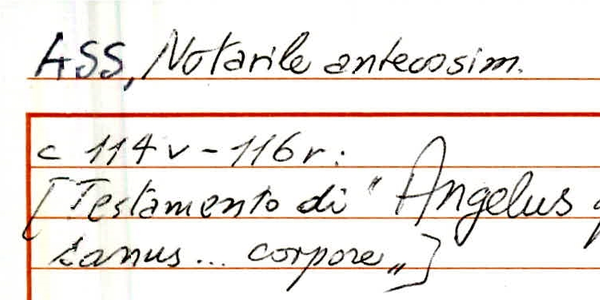 ASS, Notarile antecosim.
c 114v - 116r:
[Testamento di "Angelus
sanus... corpore"]